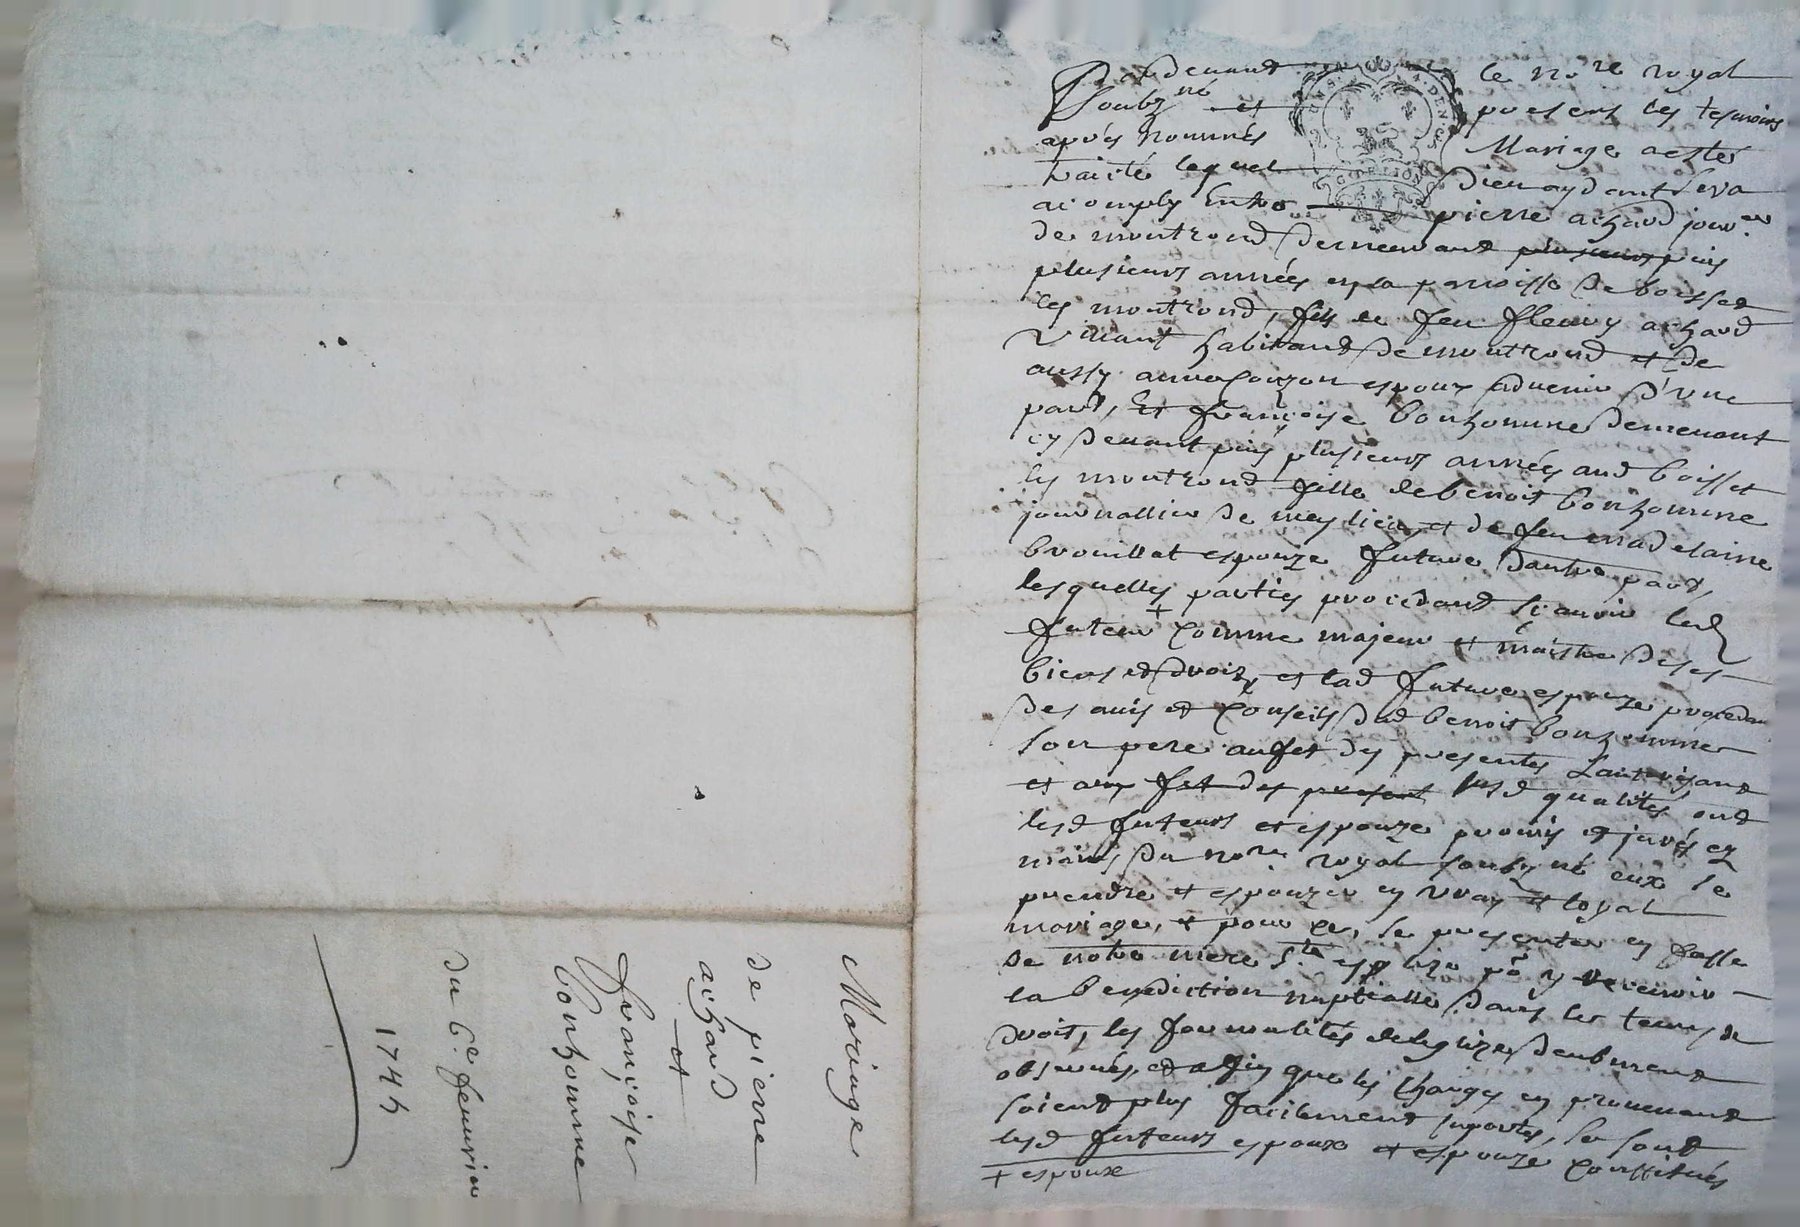 Mariage
de pierre
achard
et
francoise
bonhomme
du 6e feuvrier
1745
Pardevant le nore royal
soubzne et presens les tesmoins
après nommés Mariage a esté
traicté lequel Dieu aydant sera
acomply Entre pierre achard jourer
de montrond demeurant plusieurs puis
plusieurs années en la parroisse de boisset
les montrond, fils de feu fleury achard
vivant habitant de montrond et de
aussy anne espoux advenir d'une
part, Et françoise bonhomme demeurant
cy devant puis plusieurs années aud boisset
les montrond fille de benoit bonhomme
journallier de meylieu et de feu madelaine
brouillat espouze future dautre part,
lesquelles parties procédant scavoir led
futeur + comme majeur et maistre de ses
biens et droitz et lad future espouze procedant
des avis et conseils dud benoit bonhomme
son pere au fet des presentes Lautorisant
et aux fet des present lesd qualités ont
lesd futeurs et espouze promis et jurés ez
mains du nore royal soubzné eux se
prendre et espouzer en vray et loyal
mariage, et pour ce, se presenter en fasse
de notre mere Ste esglize po y recevoir
la benediction nuptialle dans les temps de
droit, les formalités de leglize deubment
observés, et afin que les charges en provenant
soient plus facilement suportés, se sont
lesd futeurs espoux et espouze constitués
+ espoux